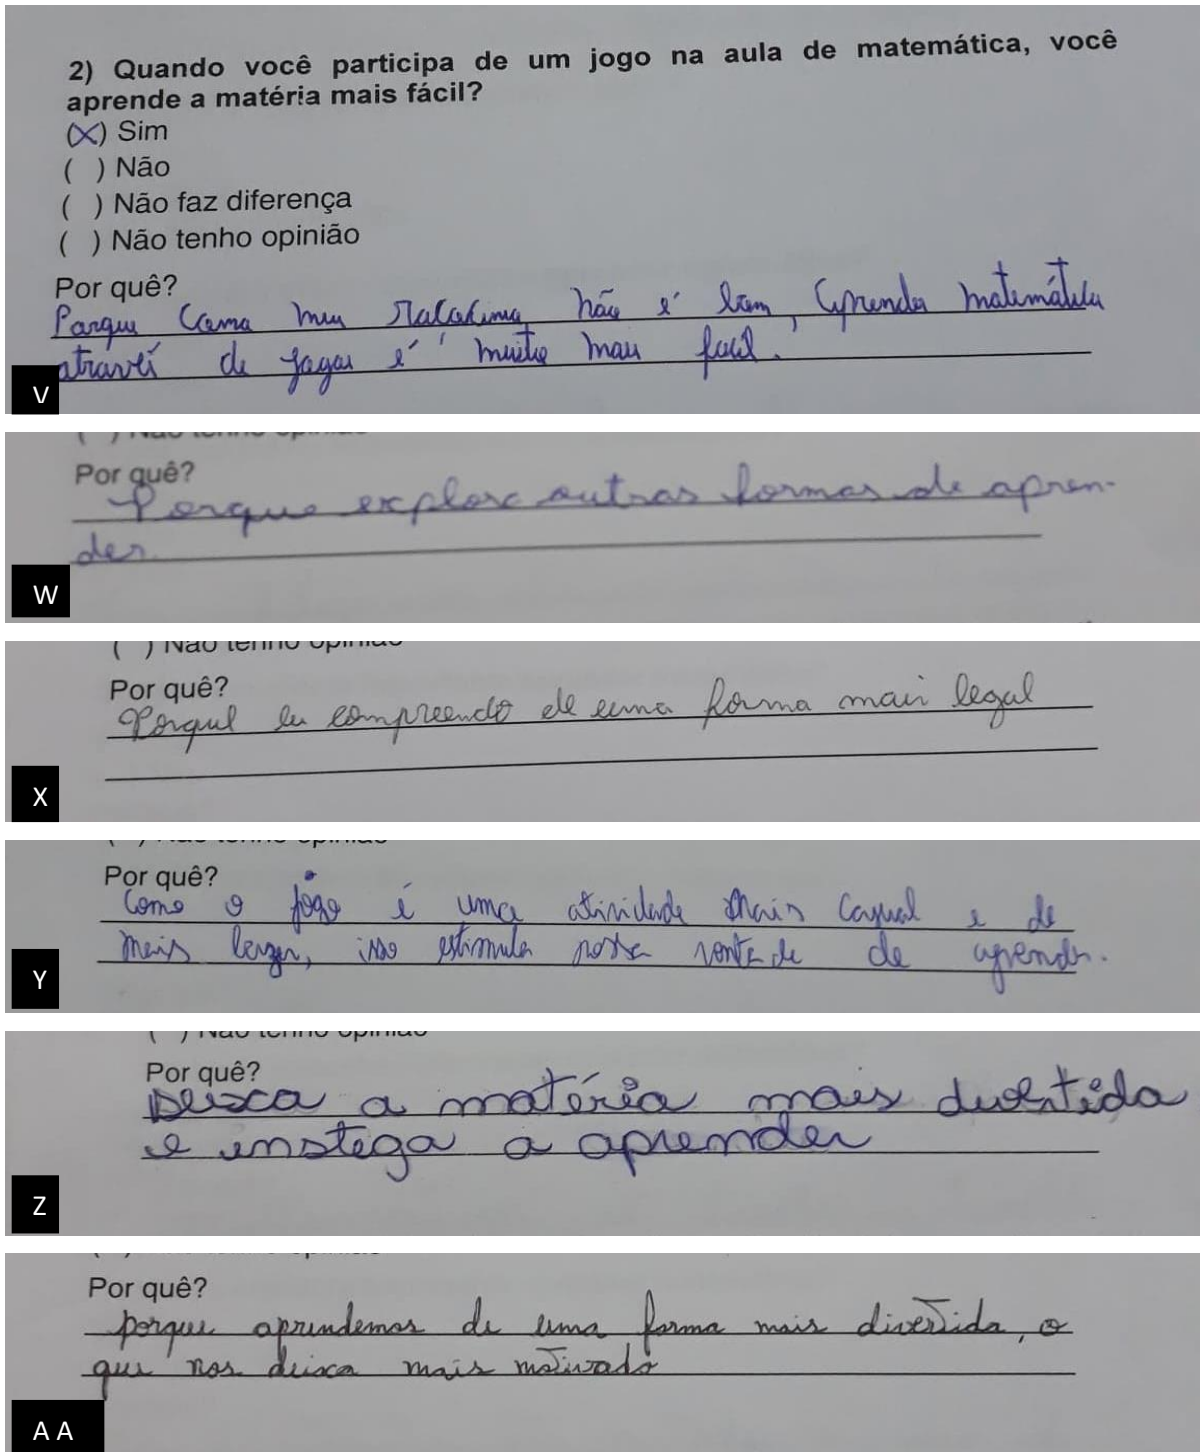 2) Quando você participa de um jogo na aula de matemática, você
aprende a matéria mais fácil?
(X) Sim
( ) Não
( ) Não faz diferença
( ) Não tenho opinião
Por quê?
Porque como meu raciocínio não é bom, aprender matemática
através de jogos é muito mais fácil.
V
Por quê?
Porque explora outras formas de apren-
der
W
( ) Não tenho opinião
Por quê?
Porque eu compreendo de uma forma mais legal
X
Por quê?
Como o jogo é uma atividade mais casual e de
mais lazer, isso estimula nossa vontade de aprender.
Y
( ) Não tenho opinião
Por quê?
Deixa a matéria mais divertida
e instiga a aprender
Z
Por quê?
porque aprendemos de uma forma mais divertida, o
que nos deixa mais motivado
A A